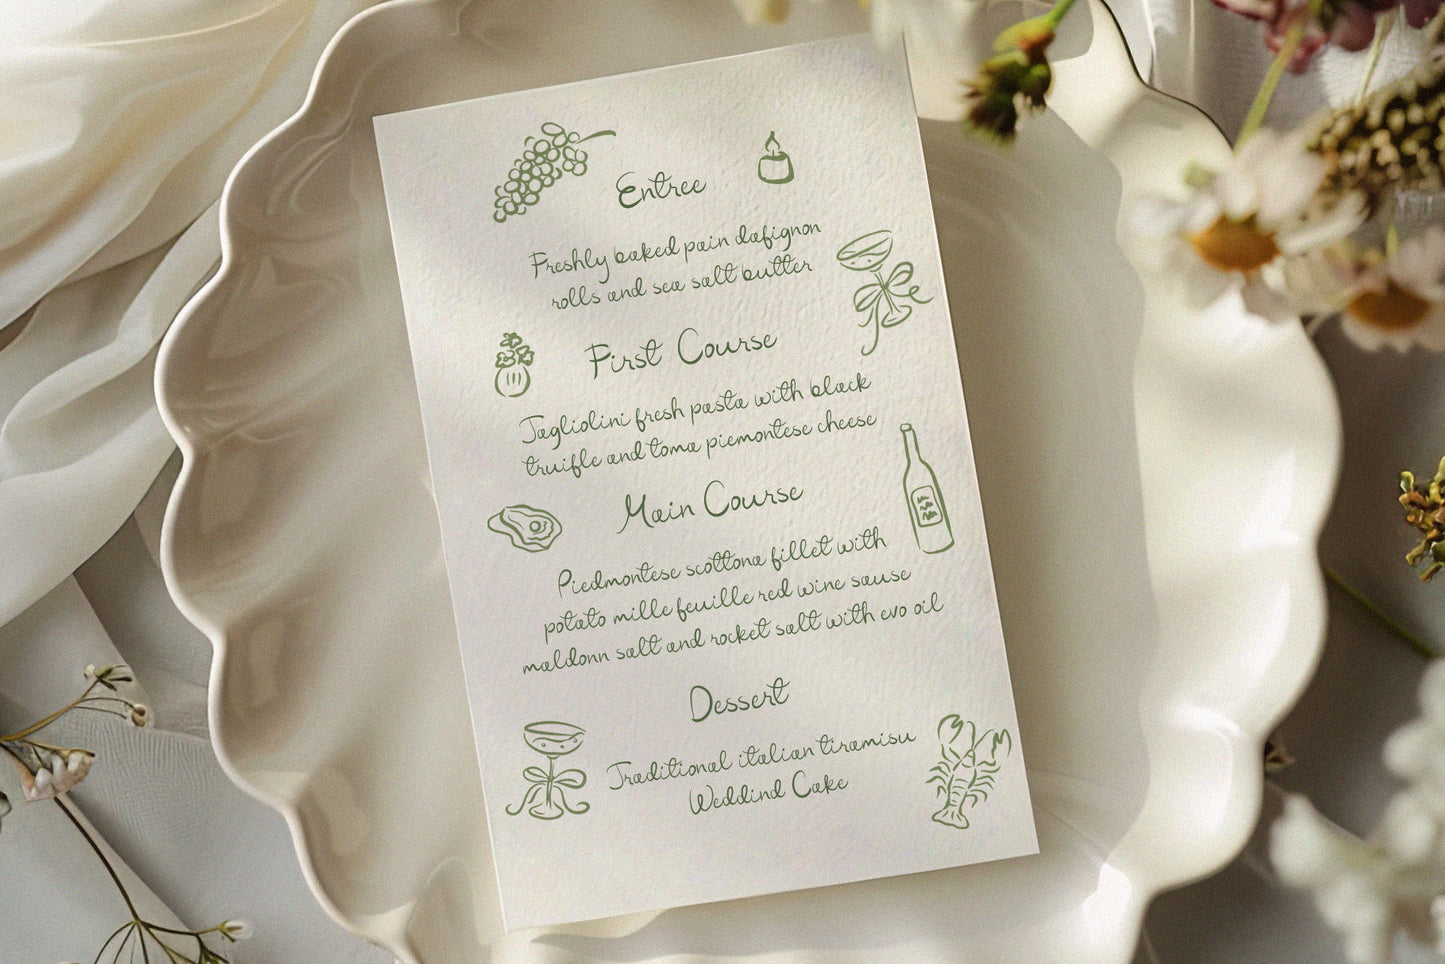 Entree
Freshly baked pain dafignon
rolls and sea salt butter
First Course
Tagliolini fresh pasta with black
truifle and toma piemontese cheese
Main Course
Piedmontese scottona fillet with
potato mille feuille red wine sause
maldonn salt and rocket salt with evo oil
Dessert
Traditional italian tiramisu
Weddind Cake